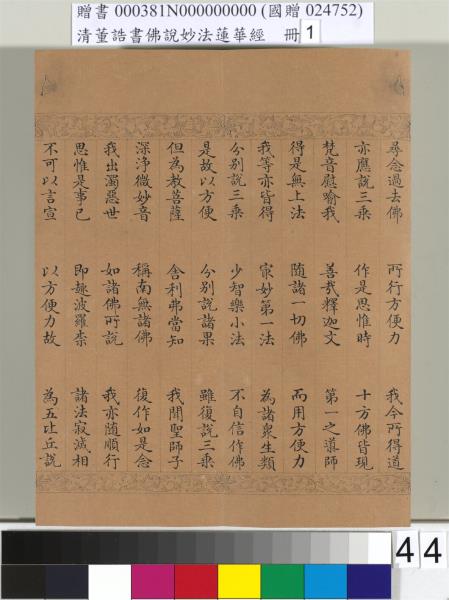 贈書 000381N000000000 (國贈 024752)
清董誥書佛說妙法蓮華經 冊 1
尋念過去佛 所行方便力 我今所得道
亦應說三乘 作是思惟時 十方佛皆現
梵音慰喻我 善哉釋迦文 第一之導師
得是無上法 隨諸一切佛 而用方便力
我等亦皆得 㝡妙第一法 為諸衆生類
分別說三乘 少智樂小法 不自信作佛
是故以方便 分別說諸果 雖復說三乘
但為教菩薩 舍利弗當知 我聞聖師子
深淨微妙音 稱南無諸佛 復作如是念
我出濁惡世 如諸佛所說 我亦隨順行
思惟是事已 即趣波羅柰 諸法寂滅相
不可以言宣 以方便力故 為五比丘說
44